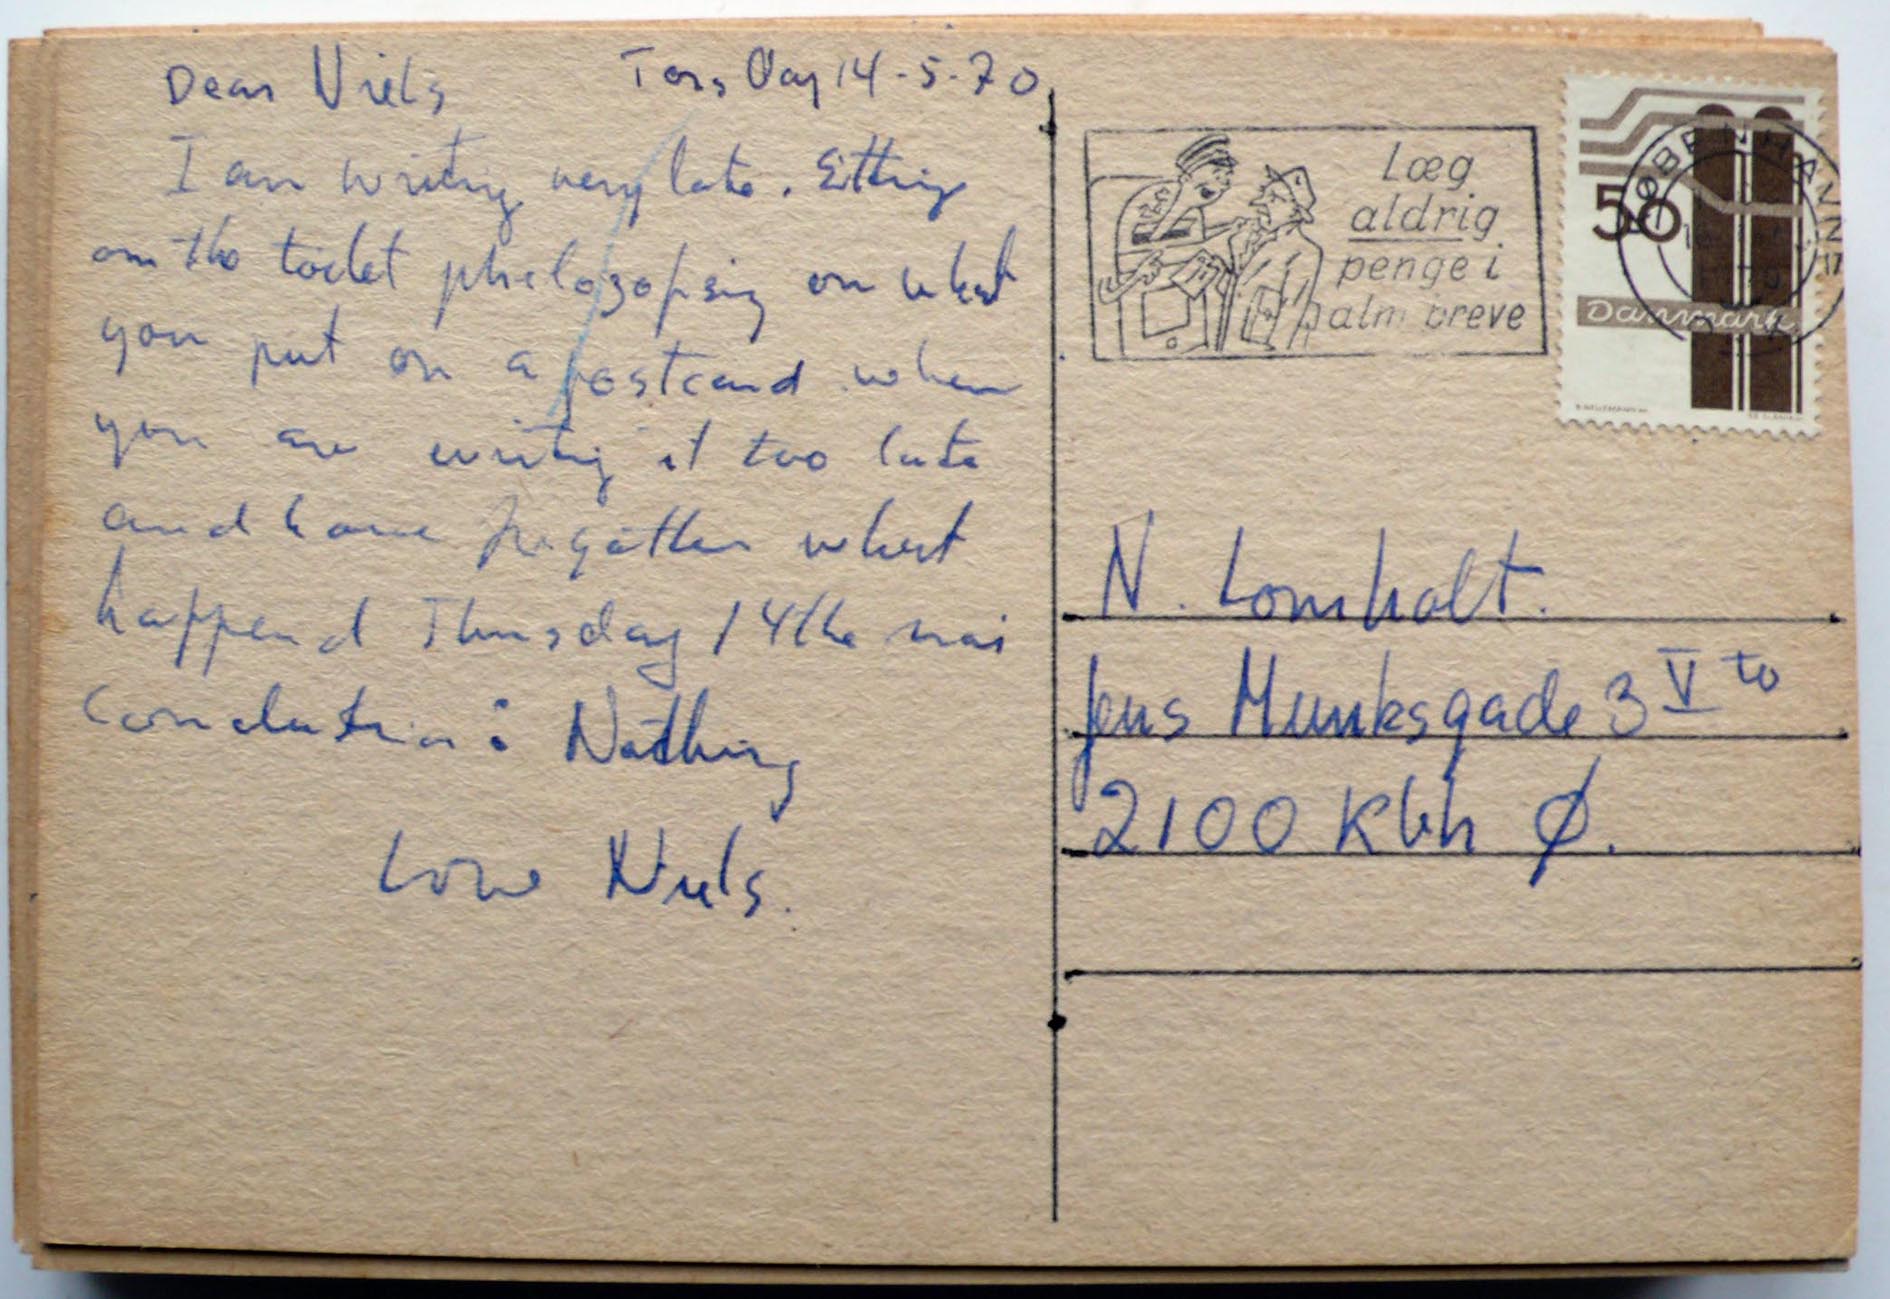 Dear Niels Torsday 14-5-70
I am writing very late. Sitting
on the toilet philozofsing on what
you put on a postcard when
you are writing it too late
and have forgotten what
happend Thursday 14the mai
Conclution: Nothing
Love Niels.
Læg
aldrig
penge i
alm breve
50
KØBENHAVN
Danmark
N. Lomholt.
Jens Munksgade 3 V to
2100 Kbh Ø.